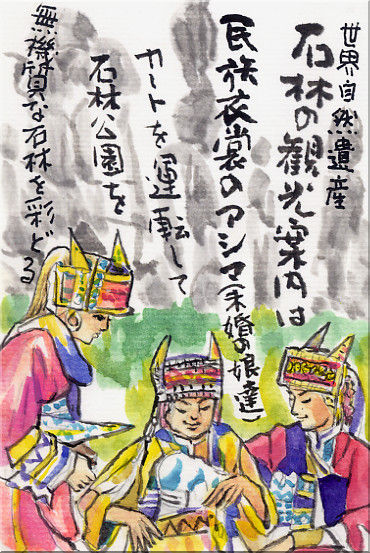 世界自然遺産
石林の観光案内は
民族衣裳のアシマ(未婚の娘達)
カートを運転して
石林公園を
無機質な石林を彩どる